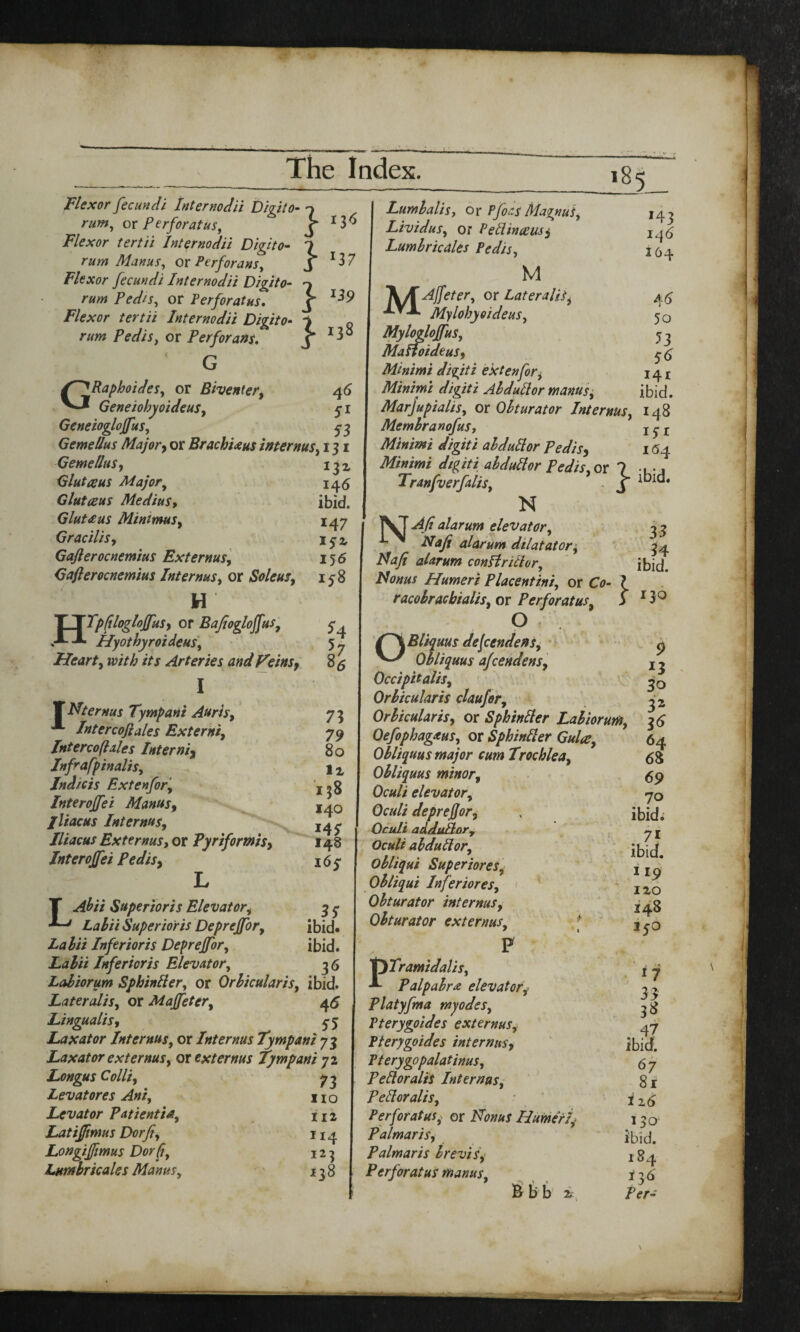 The Index.
185
Flexor secundi Internodii Digito-
rum, or Perforatus, } 136
Flexor tertii Internodii Digito-
rum Manus, or Perforans, } 137
Flexor secundi Internodii Digito-
rum Pedis, or Perforatus. } 139
Flexor tertii Internodii Digito-
rum Pedis, or Perforans. } 138
G
GRaphoides, or Biventer, 46
Geneiohyoideus, 51
Geneioglossus, 53
Gemellus Major, or Brachiæus internus, 131
Gemellus, 132
Glutæus Major, 146
Glutæus Medius, ibid.
Glutæus Minimus, 147
Gracilis, 152
Gasterocnemius Externus, 156
Gasterocnemius Internus, or Soleus, 158
H
HYpsiloglossus, or Basioglossus, 54
Hyothyroideus, 57
Heart, with its Arteries and Veins, 86
I
INternus Tympani Auris, 73
Intercostales Externi, 79
Intercostales Interni, 80
Infraspinalis, 12
Indicis Extensor, 138
Interossei Manus, 140
Iliacus Internus, 145
Iliacus Externus, or Pyriformis, 148
Interossei Pedis, 165
L
LAbii Superioris Elevator, 35
Labii Superioris Depressor, ibid.
Labii Inferioris Depressor, ibid.
Labii Inferioris Elevator, 36
Labiorum Sphincter, or Orbicularis, ibid.
Lateralis, or Masseter, 46
Lingualis, 55
Laxator Internus, or Internus Tympani 73
Laxator externus, or externus Tympani 72
Longus Colli, 73
Levatores Ani, 110
Levator Patientiæ, 112
Latissimus Dorsi, 114
Longissimus Dorsi, 123
Lumbricales Manus, 138
Lumbalis, or Psoas Magnus, 143
Lividus, or Pectinæus, 146
Lumbricales Pedis, 164
M
MAsseter, or Lateralis, 46
Mylohyoideus, 50
Myloglossus, 53
Mastoideus, 56
Minimi digiti extensor, 141
Minimi digiti Abductor manus, ibid.
Marsupialis, or Obturator Internus, 148
Membranosus, 151
Minimi digiti abductor Pedis, 164
Minimi digiti abductor Pedis, or
Transversalis, } ibid.
N
NAsi alarum elevator, 33
Nasi alarum dilatator, 34
Nasi alarum constrictor, ibid.
Nonus Humeri Placentini, or Co-
racobrachialis, or Perforatus, } 130
O
OBliquus descendens, 9
Obliquus ascendens, 13
Occipitalis, 30
Orbicularis clausor, 32
Orbicularis, or Sphincter Labiorum, 36
Oesophagæus, or Sphincter Gulæ, 64
Obliquus major cum Trochlea, 68
Obliquus minor, 69
Oculi elevator, 70
Oculi depressor, ibid.
Oculi adductor, 71
Oculi abductor, ibid.
Obliqui Superiores, 119
Obliqui Inferiores, 120
Obturator internus, 148
Obturator externus, 150
P
PYramidalis, 17
Palpabræ elevator, 33
Platysma myodes, 38
Pterygoides externus, 47
Pterygoides internus, ibid.
Pterygopalatinus, 67
Pectoralis Internus, 81
Pectoralis, 126
Perforatus, or Nonus Humeri, 130
Palmaris, ibid.
Palmaris brevis, 184
Perforatus manus, 136
Bbb 2 Per-